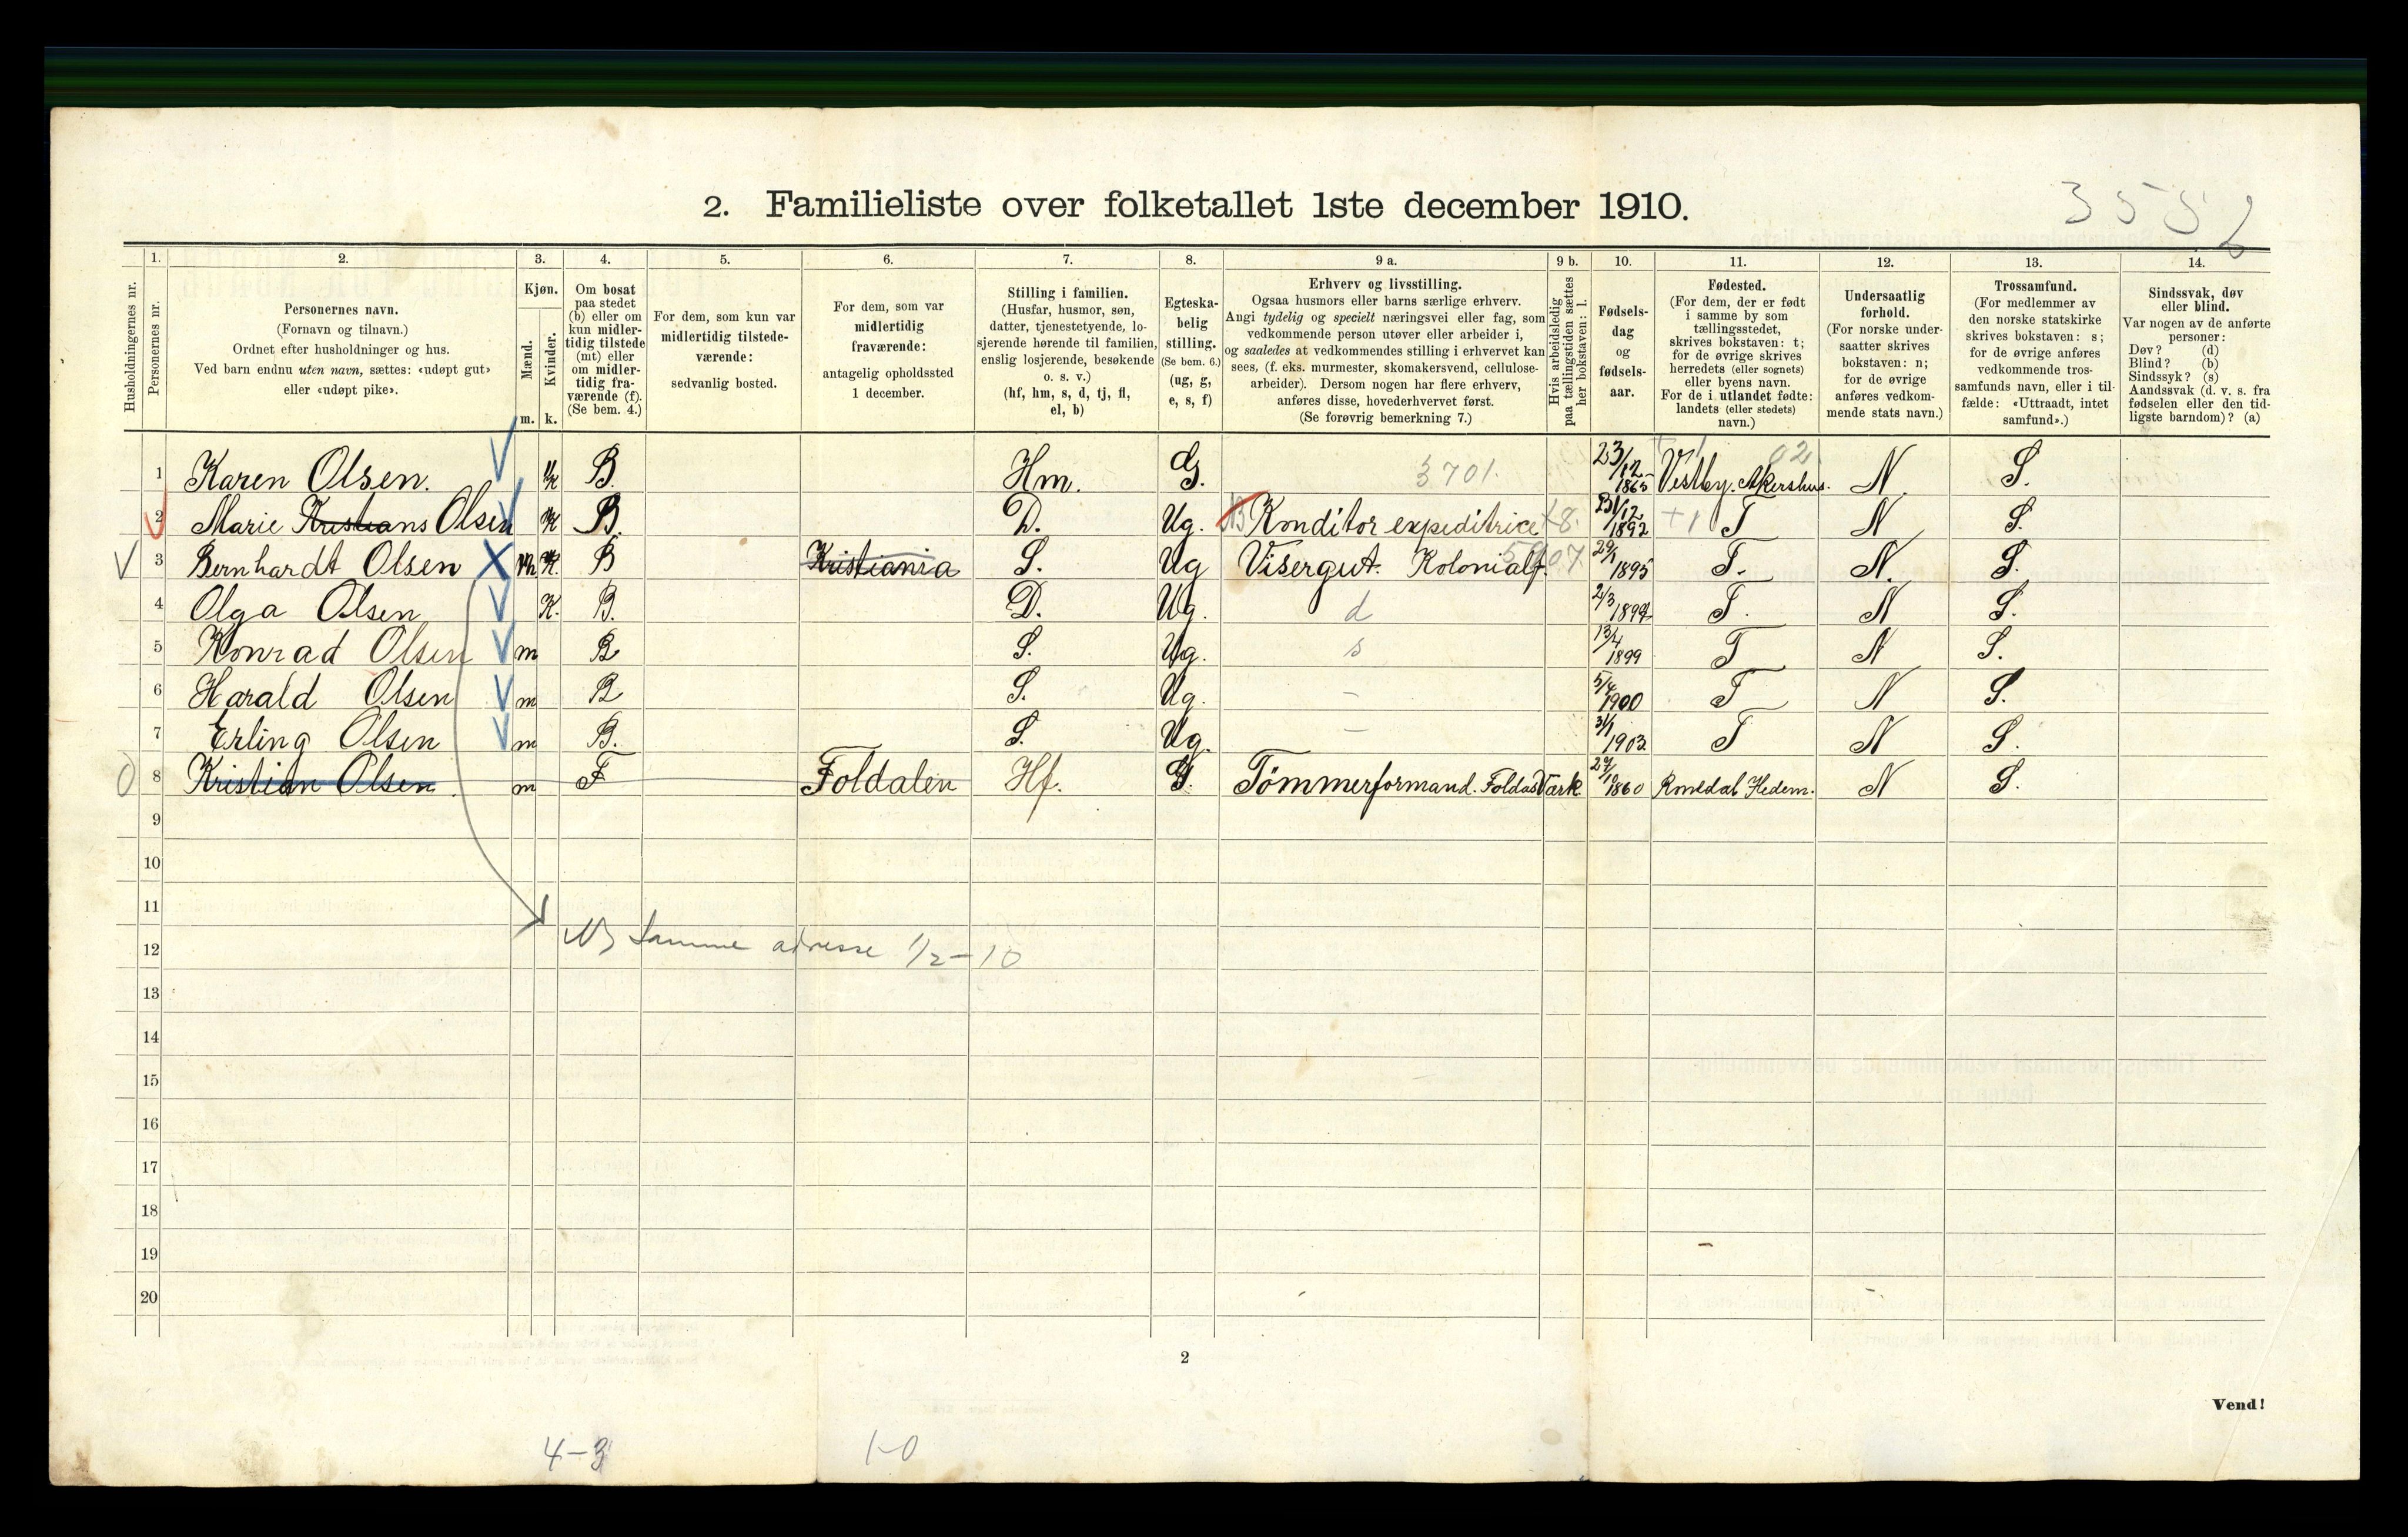 3552
2. Familieliste over folketallet 1ste december 1910.
Husholdningernes nr.
1.
Personernes nr.
2.
Personernes navn.
(Fornavn og tilnavn.)
Ordnet efter husholdninger og hus.
Ved barn endnu uten navn, sættes: «udøpt gut»
eller «udøpt pike».
3.
Kjøn.
Mænd.
Kvinder.
m.
k.
4.
Om bosat
paa stedet
(b) eller om
kun midler-
tidig tilstede
(mt) eller
om midler-
tidig fra-
værende (f).
(Se bem. 4.)
5.
For dem, som kun var
midlertidig tilstede-
værende:
sedvanlig bosted.
6.
For dem, som var
midlertidig
fraværende:
antagelig opholdssted
1 december.
7.
Stilling i familien.
(Husfar, husmor, søn,
datter, tjenestetyende, lo-
sjerende hørende til familien,
enslig losjerende, besøkende
o. s. v.)
(hf, hm, s, d, tj, fl,
el, b)
8.
Egteska-
belig
stilling.
(Se bem. 6.)
(ug, g,
e, s, f)
9 a.
Erhverv og livsstilling.
Ogsaa husmors eller barns særlige erhverv.
Angi tydelig og specielt næringsvei eller fag, som
vedkommende person utøver eller arbeider i,
og saaledes at vedkommendes stilling i erhvervet kan
sees, (f. eks. murmester, skomakersvend, cellulose-
arbeider). Dersom nogen har flere erhverv,
anføres disse, hovederhvervet først.
(Se forøvrig bemerkning 7.)
9 b.
Hvis arbeidsledig
paa tællingstiden sættes
her bokstaven: l.
10.
Fødsels-
dag
og
fødsels-
aar.
11.
Fødested.
(For dem, der er født
i samme by som
tællingsstedet,
skrives bokstaven: t;
for de øvrige skrives
herredets (eller sognets)
eller byens navn.
For de i utlandet fødte:
landets (eller stedets)
navn.)
12.
Undersaatlig
forhold.
(For norske under-
saatter skrives
bokstaven: n;
for de øvrige
anføres vedkom-
mende stats navn.)
13.
Trossamfund.
(For medlemmer av
den norske statskirke
skrives bokstaven: s;
for de øvrige anføres
vedkommende tros-
samfunds navn, eller i til-
fælde: «Uttraadt, intet
samfund».)
14.
Sindssvak, døv
eller blind.
Var nogen av de anførte
personer:
Døv? (d)
Blind? (b)
Sindssyk? (s)
Aandssvak (d. v. s. fra
fødselen eller den tid-
ligste barndom)? (a)
1 Karen Olsen. K B. Hm. G. 3701. 23/12 1865 Vestby. Akershus. 02 N. S.
2 Marie Kristians Olsen K B. D. Ug. Konditor expeditrice +8. 1892 +1 T N S.
3 Bernhardt Olsen M. K. B Kristiania S. Ug Visergut. Kolonialf. 29/1 1895 T. N. S.
4 Olga Olsen K. B. D. Ug. d 2/3 1897 T. N S.
5 Konrad Olsen m B S. Ug. s 13/4 1899 T N S.
6 Harald Olsen m B S. Ug. - 5/4 1900 T N S.
7 Erling Olsen m B. S. Ug. - 31/1 1903 T N S.
8 Kristian Olsen m F Foldalen Hf. G. Tömmerformand. Foldas Værk 1860 Romedal Hedem. N S.
9
10
11
12 NB samme adresse 1/2-10
13
14
15
16
17
18
19
20
2
Vend!
4-3 1-0